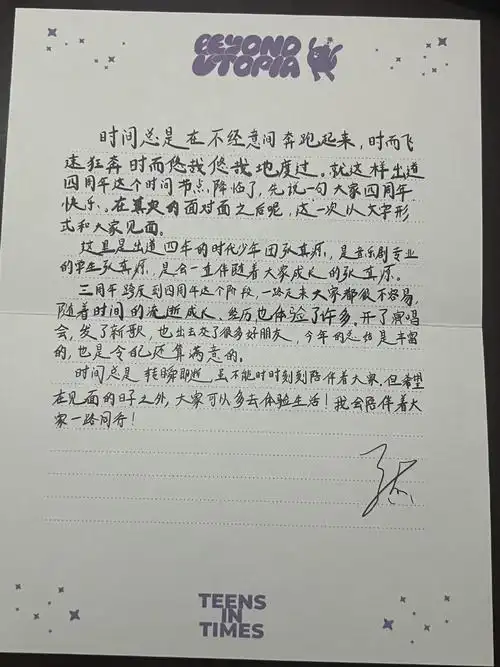 BEYOND
UTOPIA
时间总是在不经意间奔跑起来,时而飞
速狂奔时而悠哉悠哉地度过。就这样出道
四周年这个时间节点降临了,先说一句大家四周年
快乐。在真实的面对面之后呢,这一次以文字形
式和大家见面。
这里是出道四年的时代少年团张真源,是音乐剧专业
的学生张真源,是会一直伴随着大家成长的张真源。
三周年跨度到四周年这个阶段,一路走来大家都很不容易,
随着时间的流逝成长,经历也体验了许多。开了演唱
会,发了新歌,也出去交了很多好朋友,今年的总结是丰富
的,也是令自己还算满意的。
时间总是转瞬即逝,虽不能时时刻刻陪伴着大家,但希望
在见面的日子之外,大家可以多去体验生活!我会陪伴着大
家一路同行!
TEENS
IN
TIMES